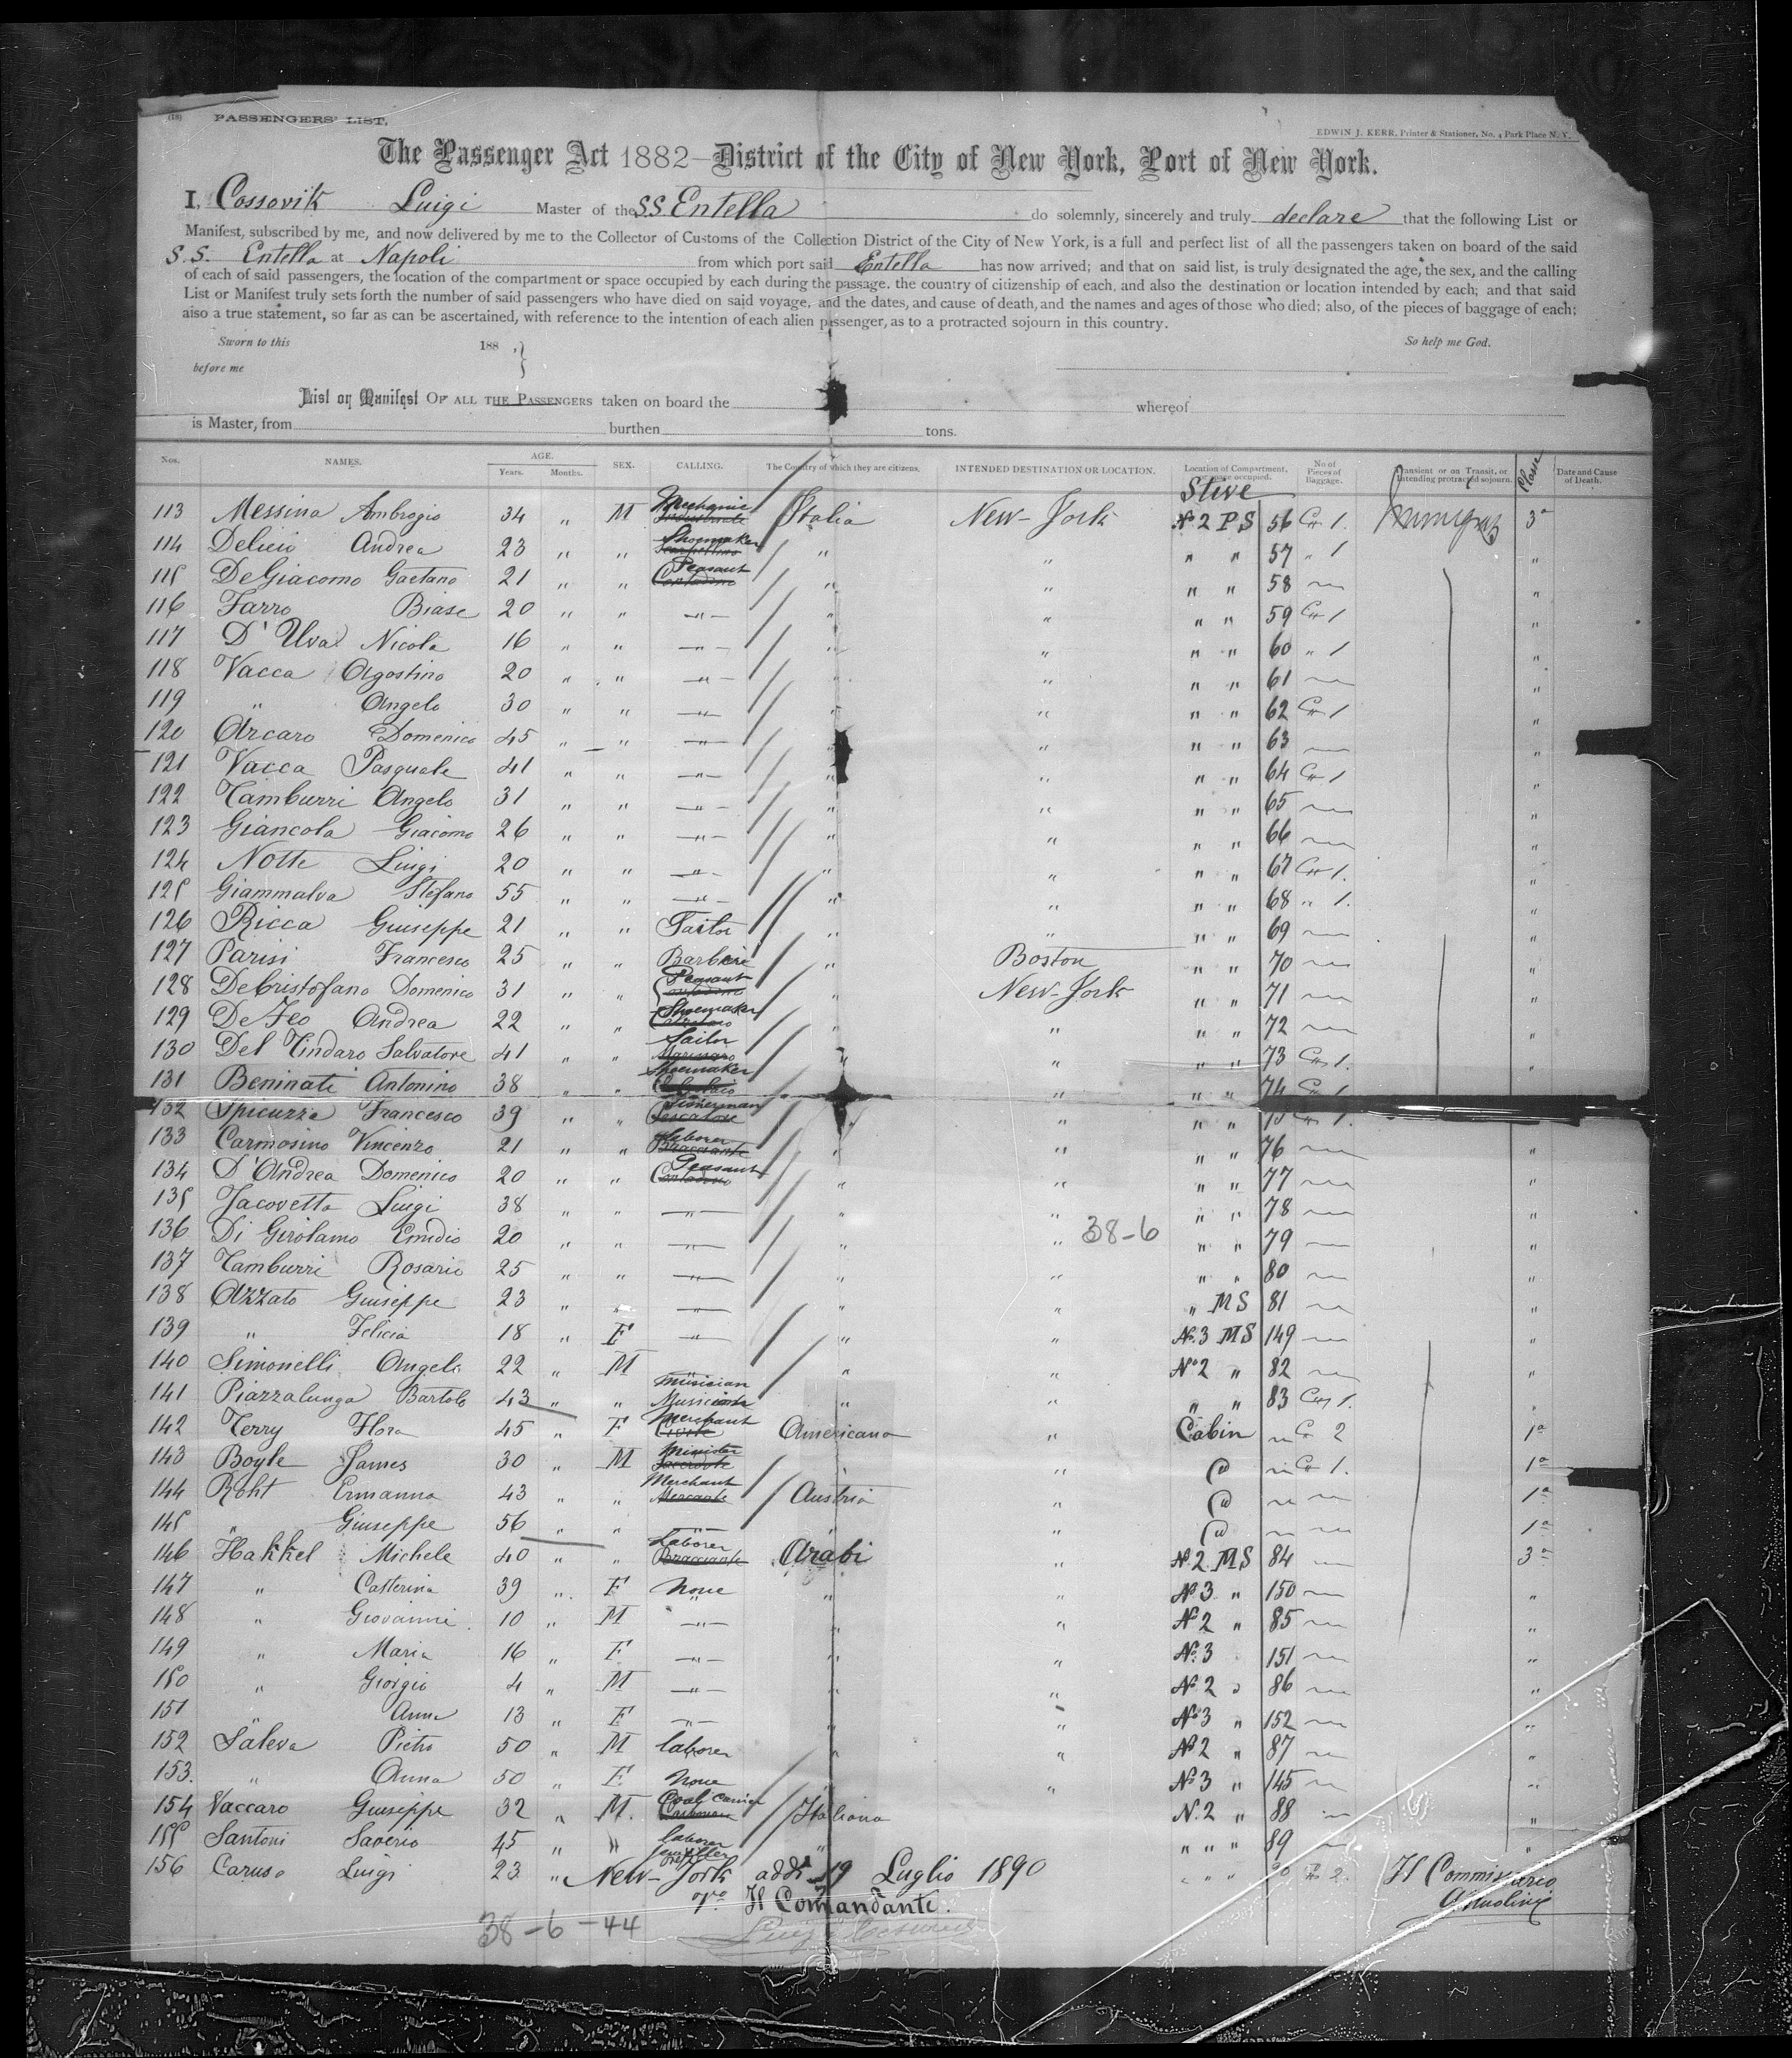 (18) PASSENGERS' LIST.
EDWIN J. KERR, Printer & Stationer, No. 4 Park Place N. Y.
The Passenger Act 1882—District of the City of New York, Port of New York.
I, Cossovik Luigi Master of the SS Entella do solemnly, sincerely and truly declare that the following List or
Manifest, subscribed by me, and now delivered by me to the Collector of Customs of the Collection District of the City of New York, is a full and perfect list of all the passengers taken on board of the said
S.S. Entella at Napoli from which port said Entella has now arrived; and that on said list, is truly designated the age, the sex, and the calling
of each of said passengers, the location of the compartment or space occupied by each during the passage. the country of citizenship of each, and also the destination or location intended by each; and that said
List or Manifest truly sets forth the number of said passengers who have died on said voyage, and the dates, and cause of death, and the names and ages of those who died; also, of the pieces of baggage of each;
also a true statement, so far as can be ascertained, with reference to the intention of each alien passenger, as to a protracted sojourn in this country.
Sworn to this 188 , } So help me God.
before me
List or Manifest OF ALL THE PASSENGERS taken on board the whereof
is Master, from burthen tons.
Nos. NAMES. AGE. Years. Months. SEX. CALLING. The Country of which they are citizens. INTENDED DESTINATION OR LOCATION. Location of Compartment, or space occupied. No of Pieces of Baggage. Transient or on Transit, or intending protracted sojourn. Classe Date and Cause of Death.
Stive
113 Messina Ambrogio 34 " M Mechanic Italia New-York No 2 P S 56 Cn 1. 3a
114 Delicio Andrea 23 " " Shoemaker " " " " 57 " 1 "
115 DeGiacomo Gaetano 21 " " Peasant Contadino " " " " 58 "
116 Farro Biase 20 " " " " " " " 59 Cn 1 "
117 D'Uva Nicola 16 " " " " " " " 60 " 1 "
118 Vacca Agostino 20 " " " " " " " 61 "
119 " Angelo 30 " " " " " " " 62 Cn 1 "
120 Arcaro Domenico 45 " " " " " " " 63 "
121 Vacca Pasquale 41 " " " " " " " 64 Cn 1 "
122 Tamburri Angelo 31 " " " " " " " 65 "
123 Giancola Giacomo 26 " " " " " " " 66 "
124 Notte Luigi 20 " " " " " " " 67 Cn 1. "
125 Giammalva Stefano 55 " " " " " " " 68 " 1. "
126 Ricca Giuseppe 21 " " Tailor " " " " 69 "
127 Parisi Francesco 25 " " Barbieri " Boston " " 70 "
128 DeCristofano Domenico 31 " " Peasant Contadino " New-York " " 71 "
129 DeFeo Andrea 22 " " Shoemaker Calzolaio " " " " 72 "
130 Del Tindaro Salvatore 41 " " Sailor Marinaro " " " " 73 Cn 1. "
131 Beninati Antonino 38 " " Shoemaker Calzolaio " " " " 74 Cn 1
132 Spicuzza Francesco 39 " " Fisherman Pescatore " " " "
133 Carmosino Vincenzo 21 " " Laborer Bracciante " " " " 76 "
134 D'Andrea Domenico 20 " " Peasant Contadino " " " " 77 "
135 Jacovetta Luigi 38 " " " " " " " 78 "
136 Di Girolamo Emidio 20 " " " " " 38-6 " " 79 "
137 Tamburri Rosario 25 " " " " " " " 80 "
138 Azzato Giuseppe 23 " " " " " " M S 81 "
139 " Felicia 18 " F " " " No. 3 M S 149 "
140 Simonelli Angelo 22 " M " " No 2 " 82 "
141 Piazzalunga Bartolo 43 " " Musician " " " " 83 Cn 1.
142 Terry Flora 45 " F Merchant Americana " Cabin 2 1a
143 Boyle James 30 " M Minister Sacerdote " " 1. 1a
144 Roht Ermanno 43 " " Merchant Mercante Austria " 1a
145 " Giuseppe 56 " " " " " 1a
146 Hakkel Michele 40 " " Laborer Bracciante Arabi " No 2 M S 84 3a
147 " Catterina 39 " F None " " No 3 " 150 "
148 " Giovanni 10 " M " " " No 2 " 85 "
149 " Maria 16 " F " " " No. 3 151 "
150 " Giorgio 4 " M " " " No 2 " 86 "
151 " Anna 13 " F " " " No 3 " 152 "
152 Saleva Pietro 50 " M laborer " " No 2 " 87 "
153. " Anna 50 " F None " No 3 " 145 "
154 Vaccaro Giuseppe 32 " M. Coal carrier Italiana N. 2 " 88 "
155 Santoni Saverio 45 " " laborer " " " " 89 "
156 Caruso Luigi 23 " New-York addi 19 Luglio 1890 " " " 90 2. Il Commissario
Il Comandante.
38-6-44